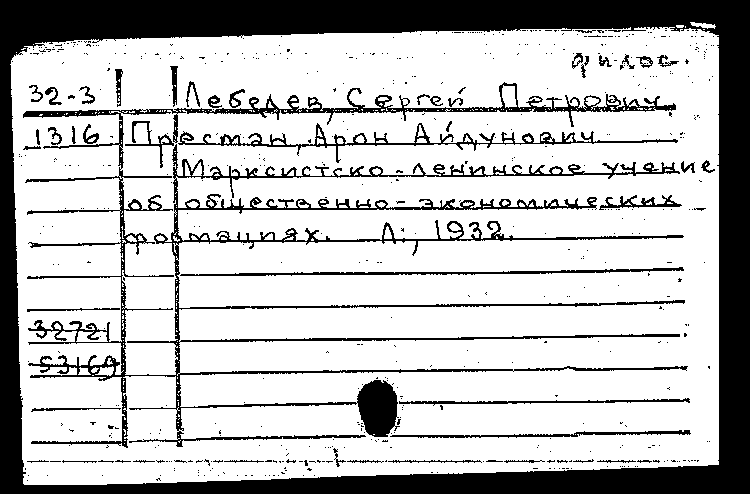 филос.
32-3 Лебедев, Сергей Петрович.
1316 Престман, Арон Айдунович
Марксистско-ленинское учение
об общественно-экономических
формациях. Л., 1932.
32721
53169